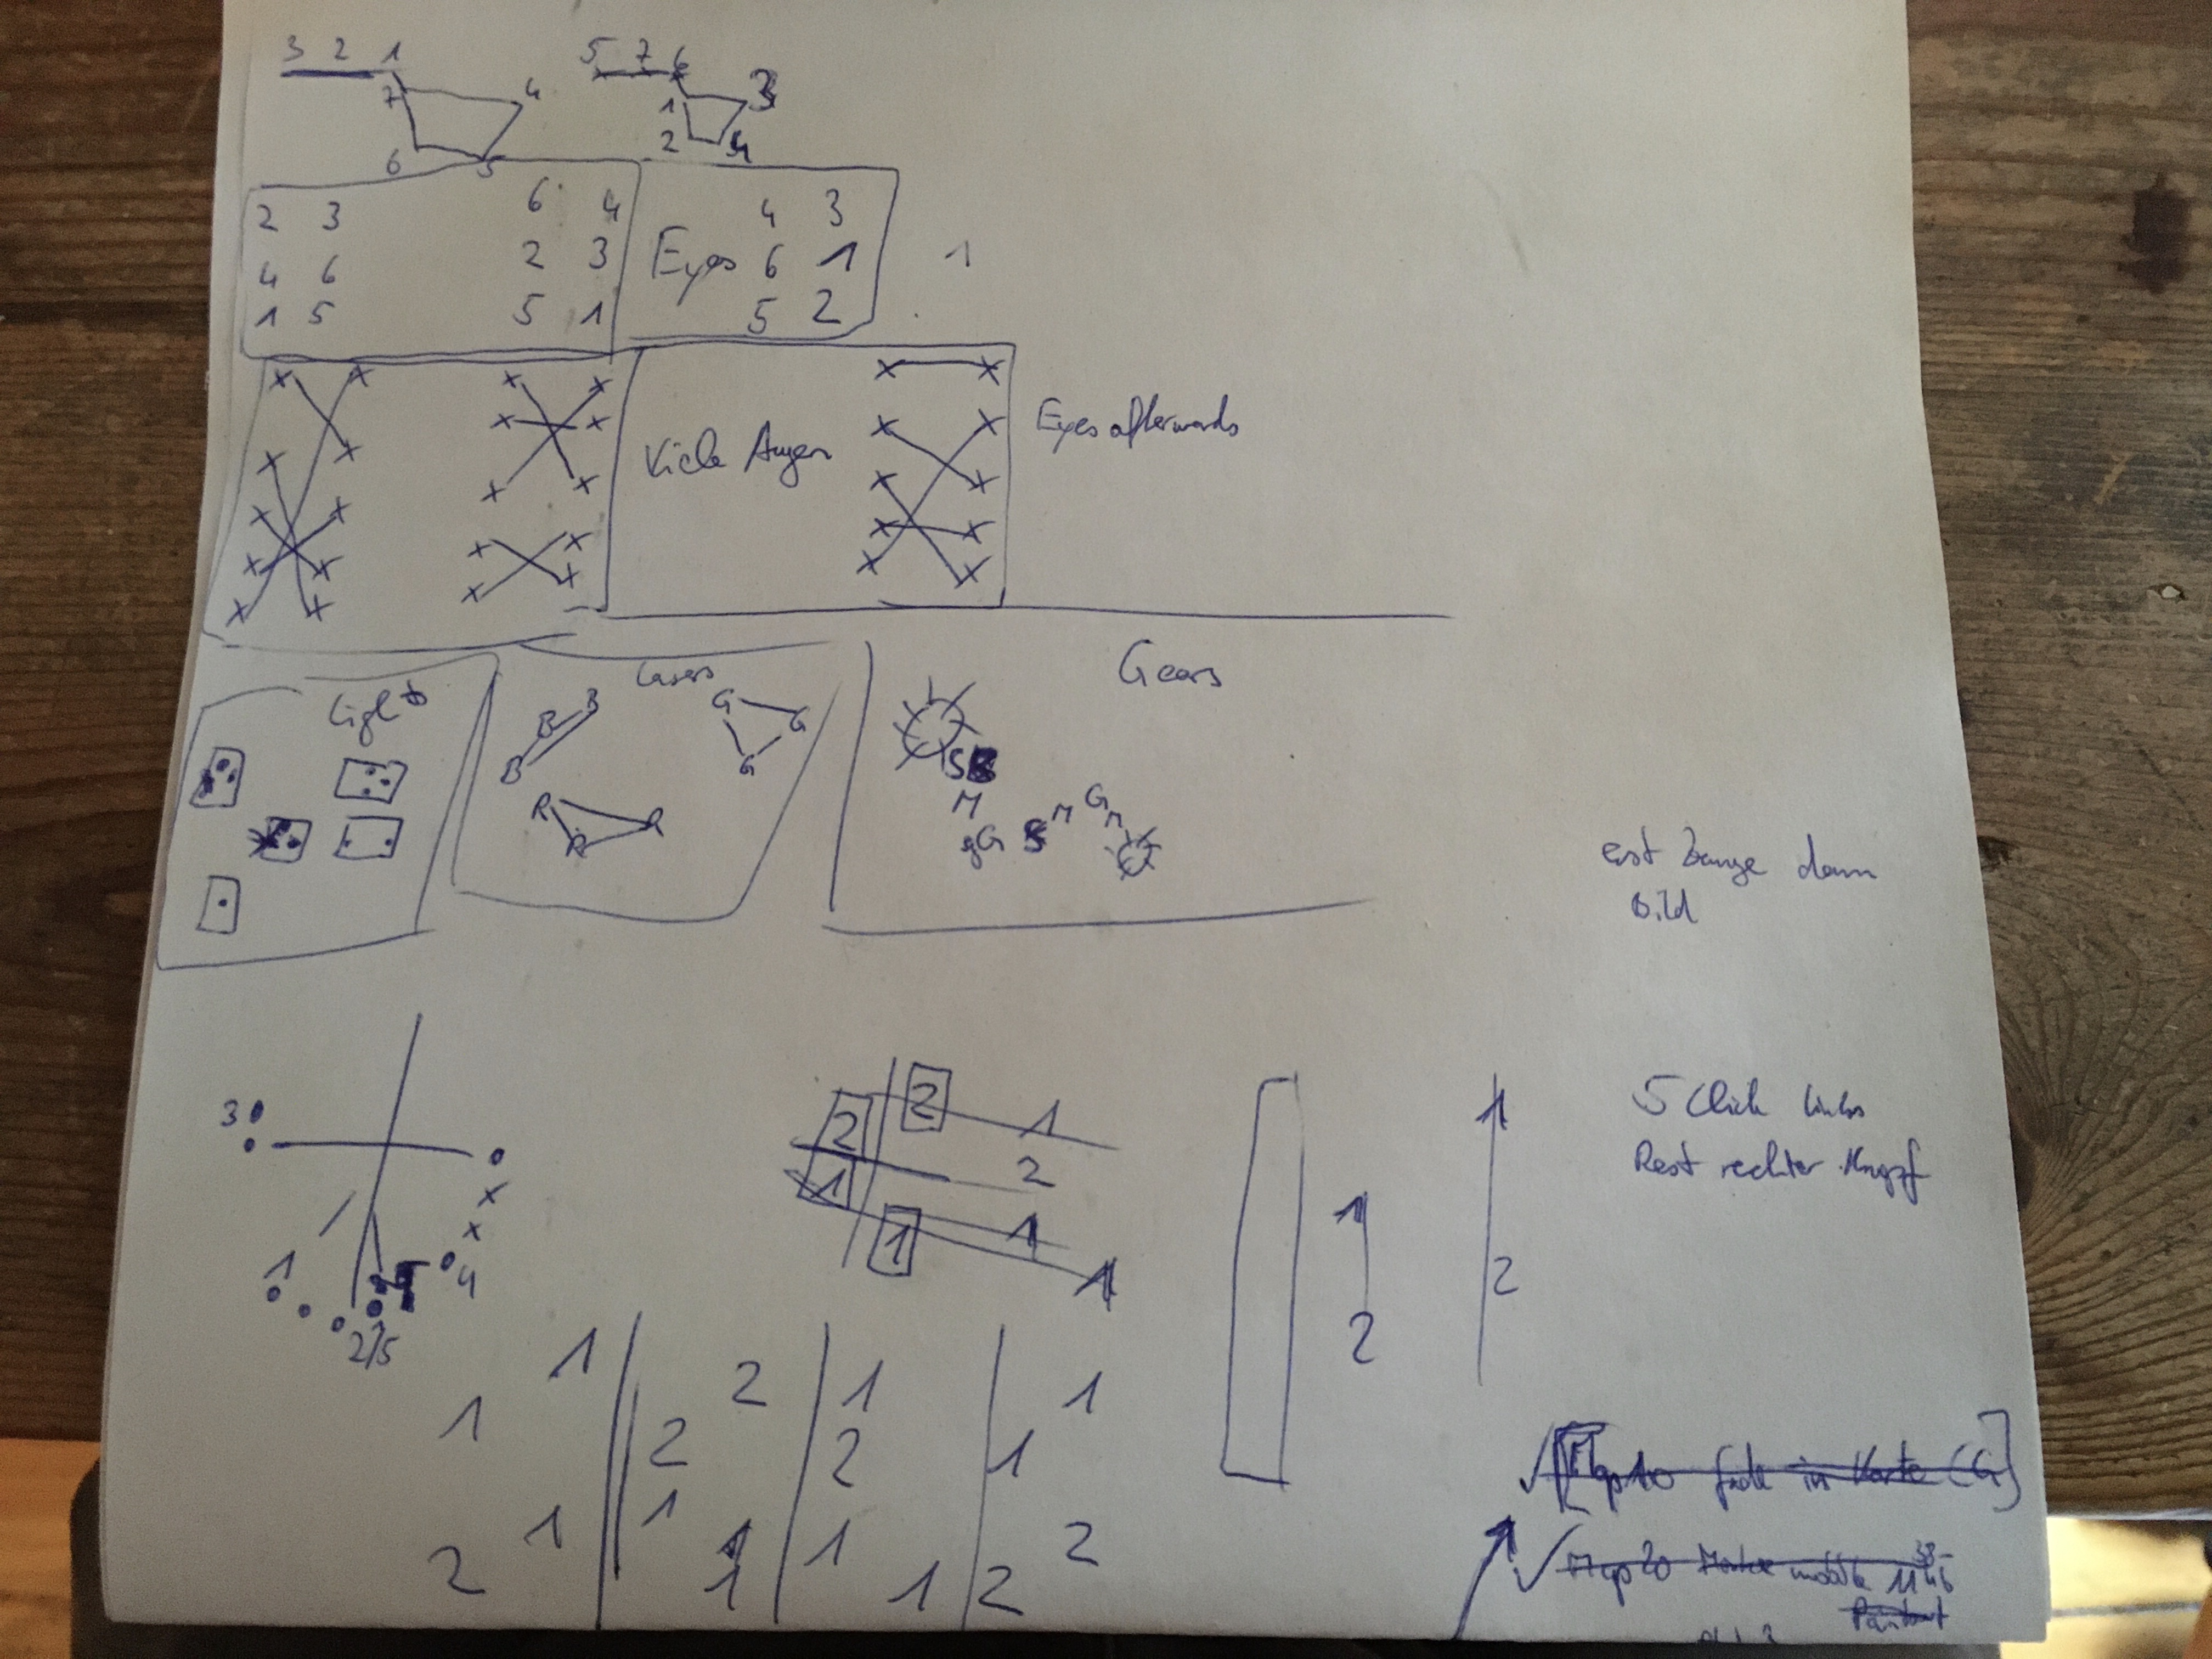 3 2 1
5 7 6
7 4
1 3
6 5
2 4
2 3 6 4
4 6 2 3
1 5 5 1
Eyes
4 3
6 1
5 2
1
Viele Augen
Eyes afterwards
Lights
Lasers
B B
B
G G
G
R R
R
Gears
S
M
G M G
M
erst Zange dann
Bild
3
1
4
2/5
2 1
2 2
1 1
1 1
1
2
1
2
5 Click links
Rest rechter Knopf
1 2 1 1
1 2 2 1
1 1 1 2
2 1 1 2
Map 10 finde in Karte (G)
Map 20 mobile 11